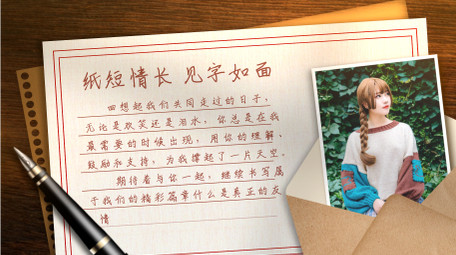 纸短情长 见字如面
回想起我们共同走过的日子，
无论是欢笑还是泪水，你总是在我
最需要的时候出现，用你的理解、
鼓励和支持，为我撑起了一片天空。
期待着与你一起，继续书写属
于我们的精彩篇章什么是真正的友
情